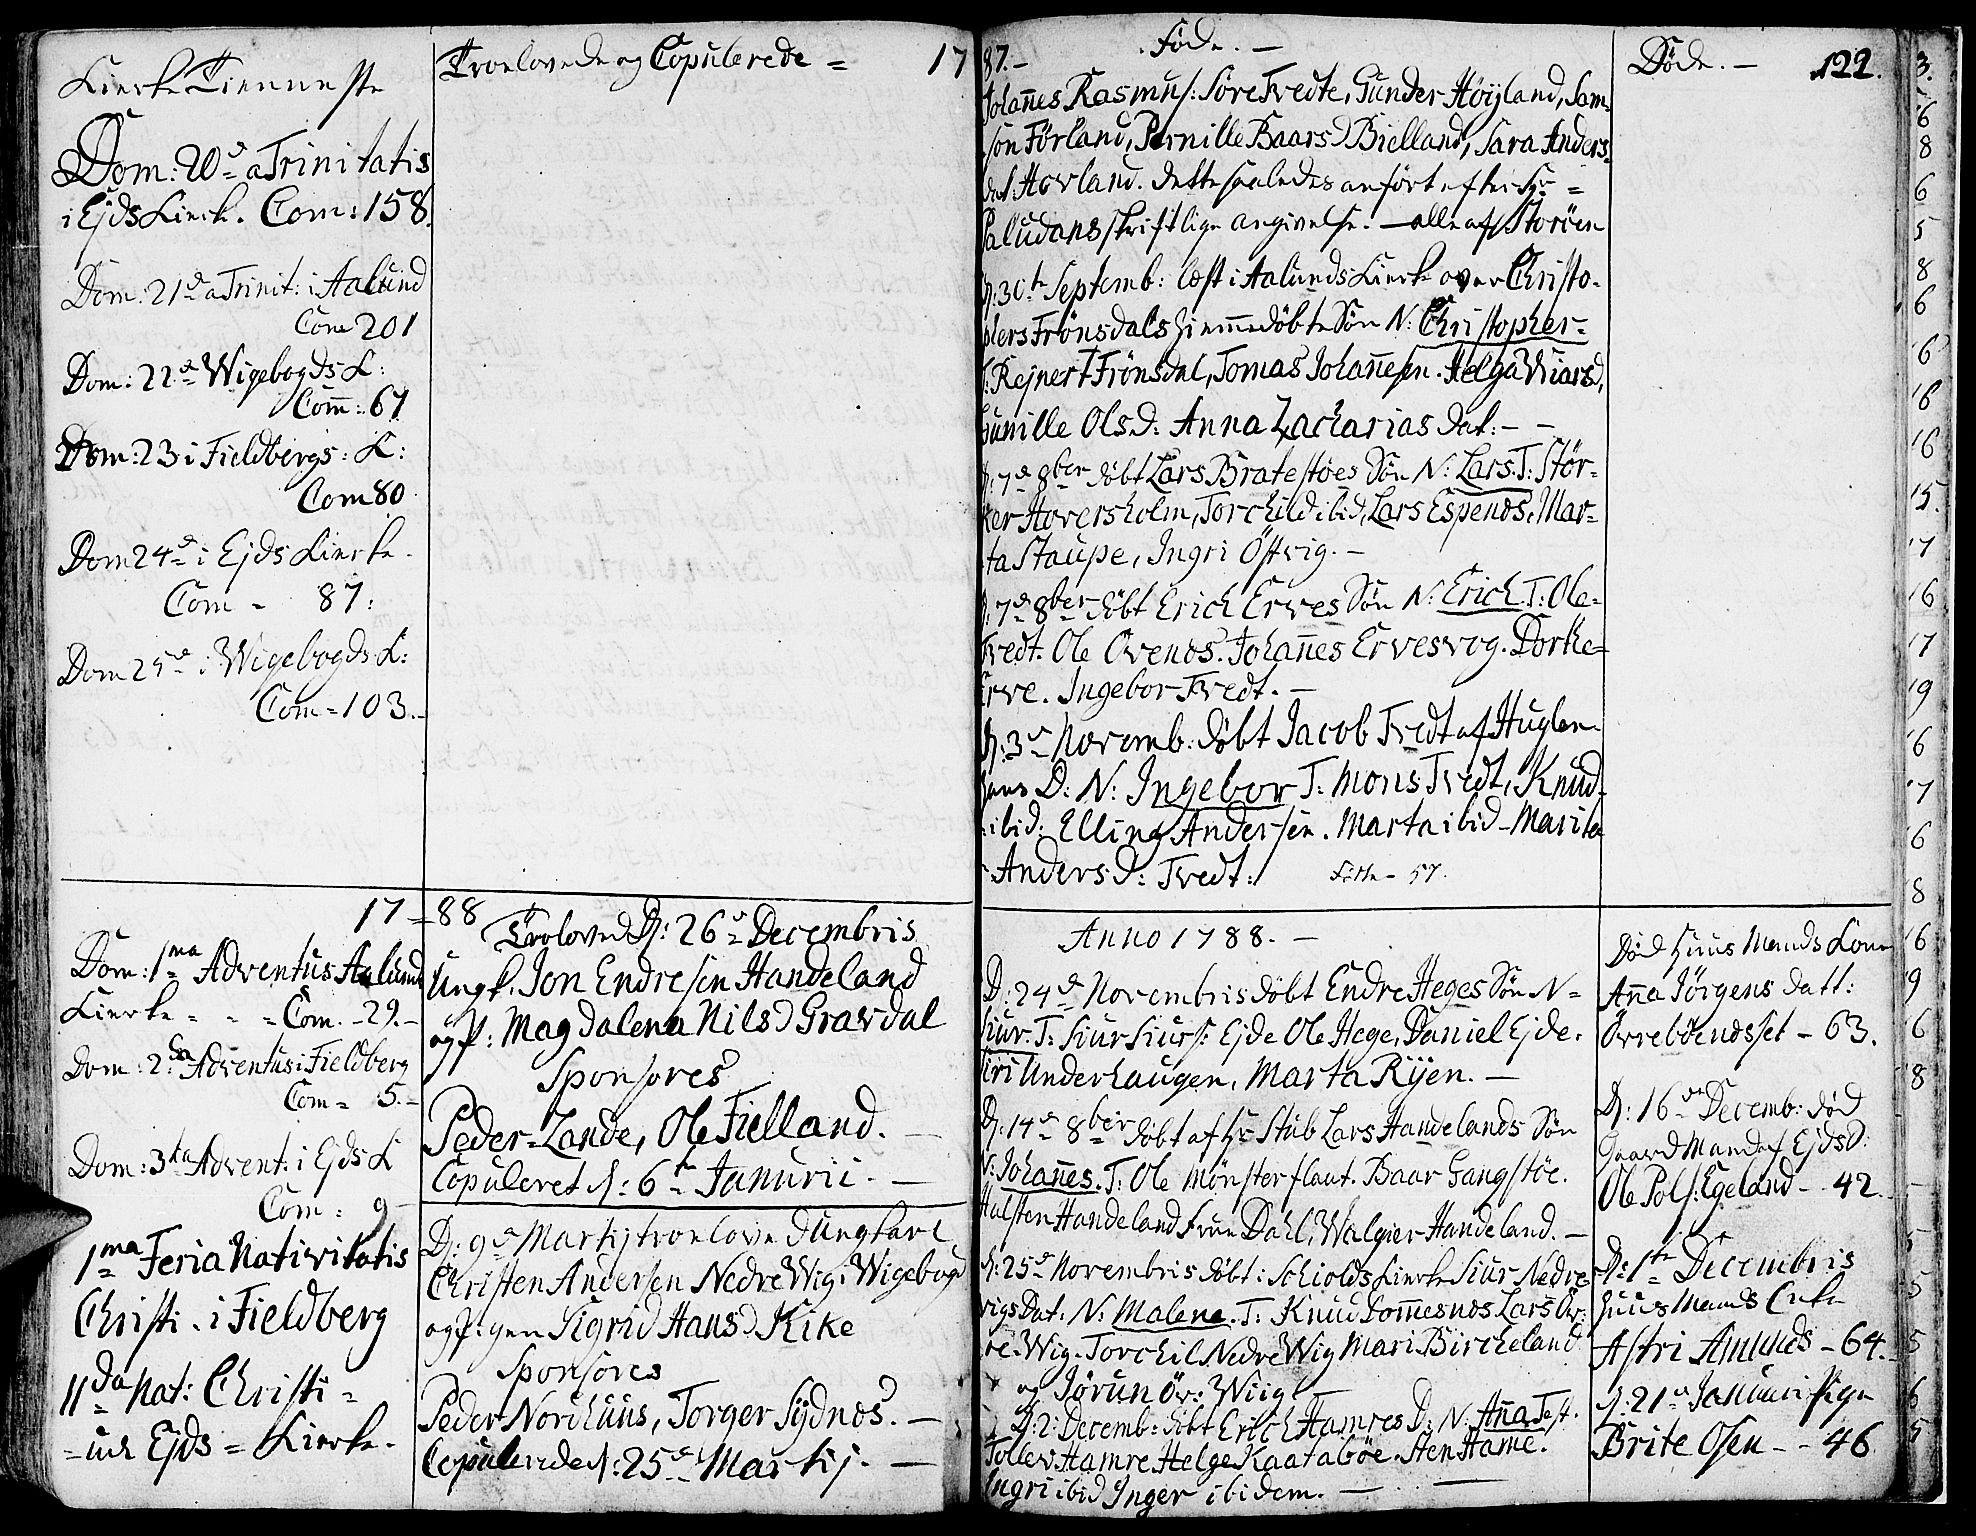 Kierke Tienneste
Dom: 20de a Trinitatis
i Ejds Kierk. Com: 158.
Dom: 21de a Trinit: i Aalund
Com 201
Dom: 22de Wigebogds K:
Com̅: 67
Dom: 23 i Fieldbergs: K:
Com 80
Dom 24de i Ejds Kierke.
Com - 87:
Dom 25de i Wigebogds K:
Com = 103.-
Troelovede og Copulerede = 17
87.- Føde. -
Johan̅es Rasmus: Søre Tvedte, Gunder Höyland, Sam-
son Förland, Pernille Baars D Bielland, Sara Anders
dat. Hovland. dette saaledes anført efter Hr =
Paludans skriftlige angivelse. - alle af Storöen
D: 30te Septemb: læst i Aalunds Kierke over Christo-
phers Frönsdals hiemmedøbte Søn N: Christopher-
T: Rejnert Frönsdal, Tomas Johan̅esen. Helga Wiarsd,
Gunille Ols D: Anna Zacharias dat: - -
D: 7de 8ber døbt Lars Bratestöes Søn N: Lars. T: Stör-
ker Hoversholm, Torchild ibid, Lars Espenos, Mar-
ta Staupe, Ingri Östvig. -
D: 7de 8ber døbt Erich Erves Søn N: Erich. T: Ole-
Tvedt. Ole Ovenos. Johan̅es Ervesvog. Dorthe
Erve. Ingebor Tvedt. -
D: 3de Novemb: døbt Jacob Tvedt af Huglen
hans D: N: Ingebor T: Mons Tvedt, Knud
ibid: Elling Andersen. Marta ibid - Marita
Anders D: Tvedt: Fødte - 57.
Døde. - 122.
17 = 88
Dom: 1ma Adventus Aalund
Kierke - - - Com. - 29. -
Dom: 2da Adventus i Fieldberg
Com = 5. -
Dom: 3tia Advent: i Ejds K
Com = 9
1ma Feria Nativitatis
Christi. i Fieldberg
IIda Nat: Christi =
- udi Ejds = Kierke.
Trolovned D: 26de Decembris
Ungk. Jon Endresen Handeland
og P: Magdalena Nils D Gravdal
Sponsores
Peder Lande, Ole Fielland. -
Copuleret d: 6te Januarii. -
D: 9de Martij troelovned Ungkarl
Christen Andersen Nedre Wig. Wigebogd
og P:gen Sigrid Hans D Kike
Sponsores
Peder Nordhuus, Torger Sydnos. -
Copulerede d: 25de Martij. -
Anno 1788. -
D: 24de Novembris døbt Endre Heges Søn N =
Siur. T: Siur Siurs: Ejde Ole Hege, Daniel Ejde.
Siri Underhaugen, Marta Rijen. -
D: 14de 8ber døbt af Hr Stub Lars Handelands Søn
N: Johan̅es. T: Ole Mönsterflaut. Baar Gangstöe.
Halsten Handeland Fruen Dahl, Walgier Handeland. -
D: 25de Novembris døbt i Schiolds Kierke Siur Nedre
vigs Dat: N: Malene. T: Knud Tom̅esnos Lars Öv-
re-Wig-Torchil Nedre Wig Mari Bircheland
og Jörun Öv: Wiig
D: 2: Decemb: døbt Erich Hamres D: N: An̅a Test.
Tollev Hamre Helge Kaataböe Sten Hame.
Ingri ibid Inger ibidem. -
Død Huus Mands Kone
An̅a Jörgens Datt:
Övreböendsset - 63.
D: 16de Decemb: død
Gaard Mand af Ejds S:
Ole Pols: Egeland - 42.
D: 1te Decembris
Huus Mands Enke
Astri Amunds - 64.
d: 21de Januari Pige
Brite Osen - - 46